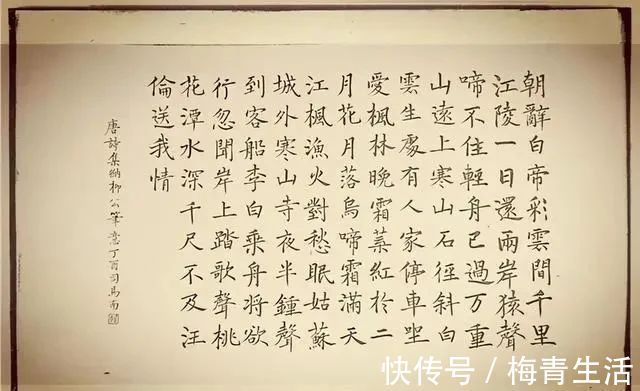 朝辭白帝彩雲間千里
江陵一日還兩岸猿聲
啼不住輕舟已過万重
山遠上寒山石徑斜白
雲生處有人家停車坐
愛楓林晚霜葉紅於二
月花月落烏啼霜滿天
江楓漁火對愁眠姑蘇
城外寒山寺夜半鍾聲
到客船李白乘舟將欲
行忽聞岸上踏歌聲桃
花潭水深千尺不及汪
倫送我情
唐詩集納柳公筆意丁酉司馬
快传号/梅青生活